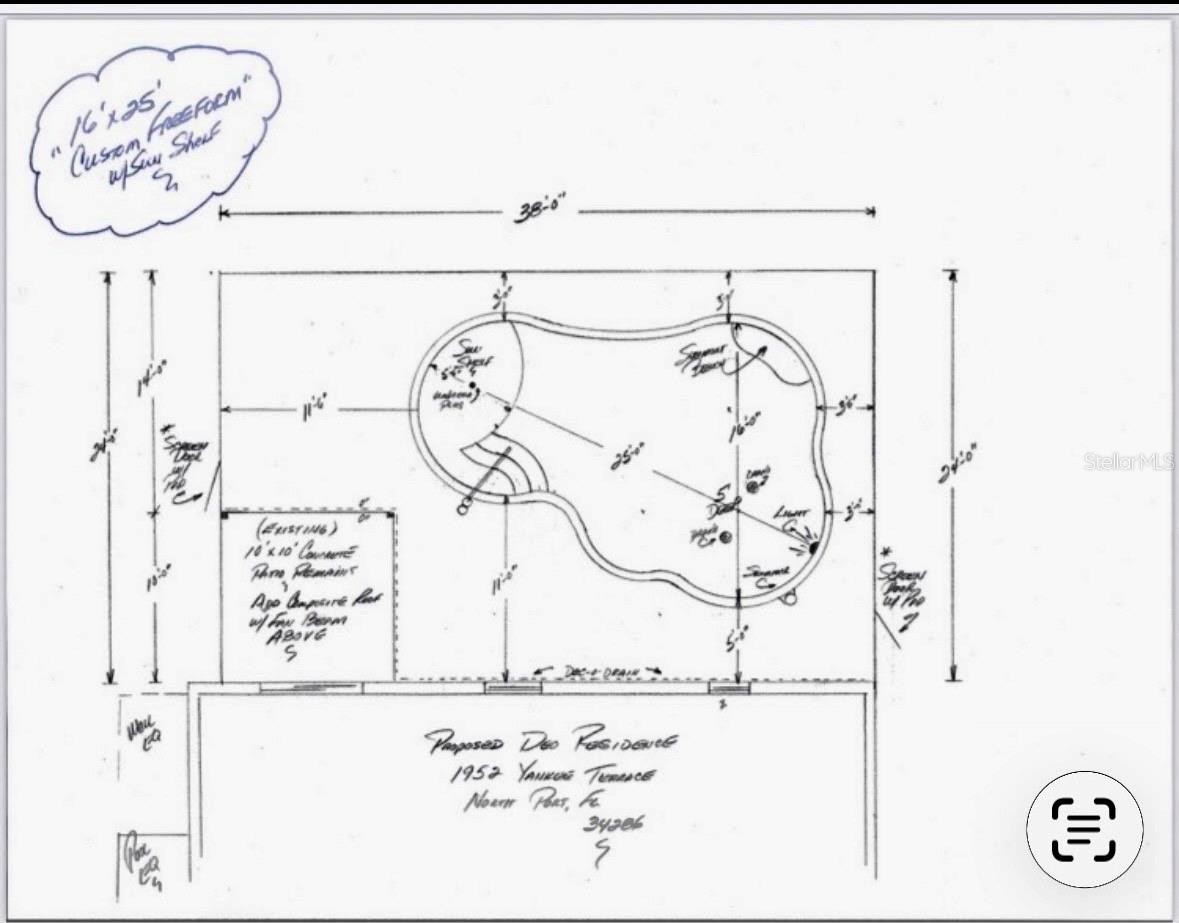 "16' x 25'
Custom Freeform"
w/ Sun Shelf
38'-0"
3'-0"
3'-0"
14'-0"
24'-0"
10'-0"
* Screen
Door
w/
Pad
11'-6"
Sun
Shelf
Umbrella
Swimout
Bench
3'-6"
16'-0"
25'-0"
5'
Deep
Drain
Drain
Light
Skimmer
24'-0"
* Screen
Door
w/ Pad
(Existing)
10' x 10' Concrete
Patio Remains
Add Composite Roof
w/ Fan Beam
Above
11'-0"
5'-0"
Dec-O-Drain
Well
EQ
Pool
EQ
Proposed Deo Residence
1952 Yankee Terrace
North Port, FL
34286
StellarMLS